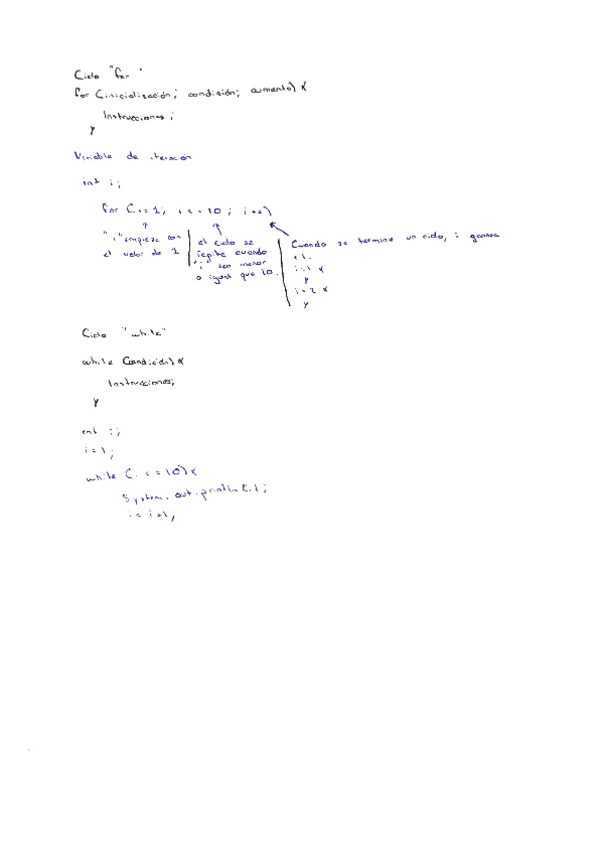 Ciclo "for"
for (inicialización; condición; aumento) {
Instrucciones;
}
Variable de iteración
int i;
for (i=1; i<=10; i++)
"i" empieza con
el valor de 1
el ciclo se
repite cuando
"i" sea menor
o igual que 10.
Cuando se termina un ciclo, i genera
+1.
i=1 {
}
i=2 {
}
Ciclo "while"
while (condición) {
Instrucciones;
}
int i;
i=1;
while (i<=10) {
System.out.println(i);
i=i+1;